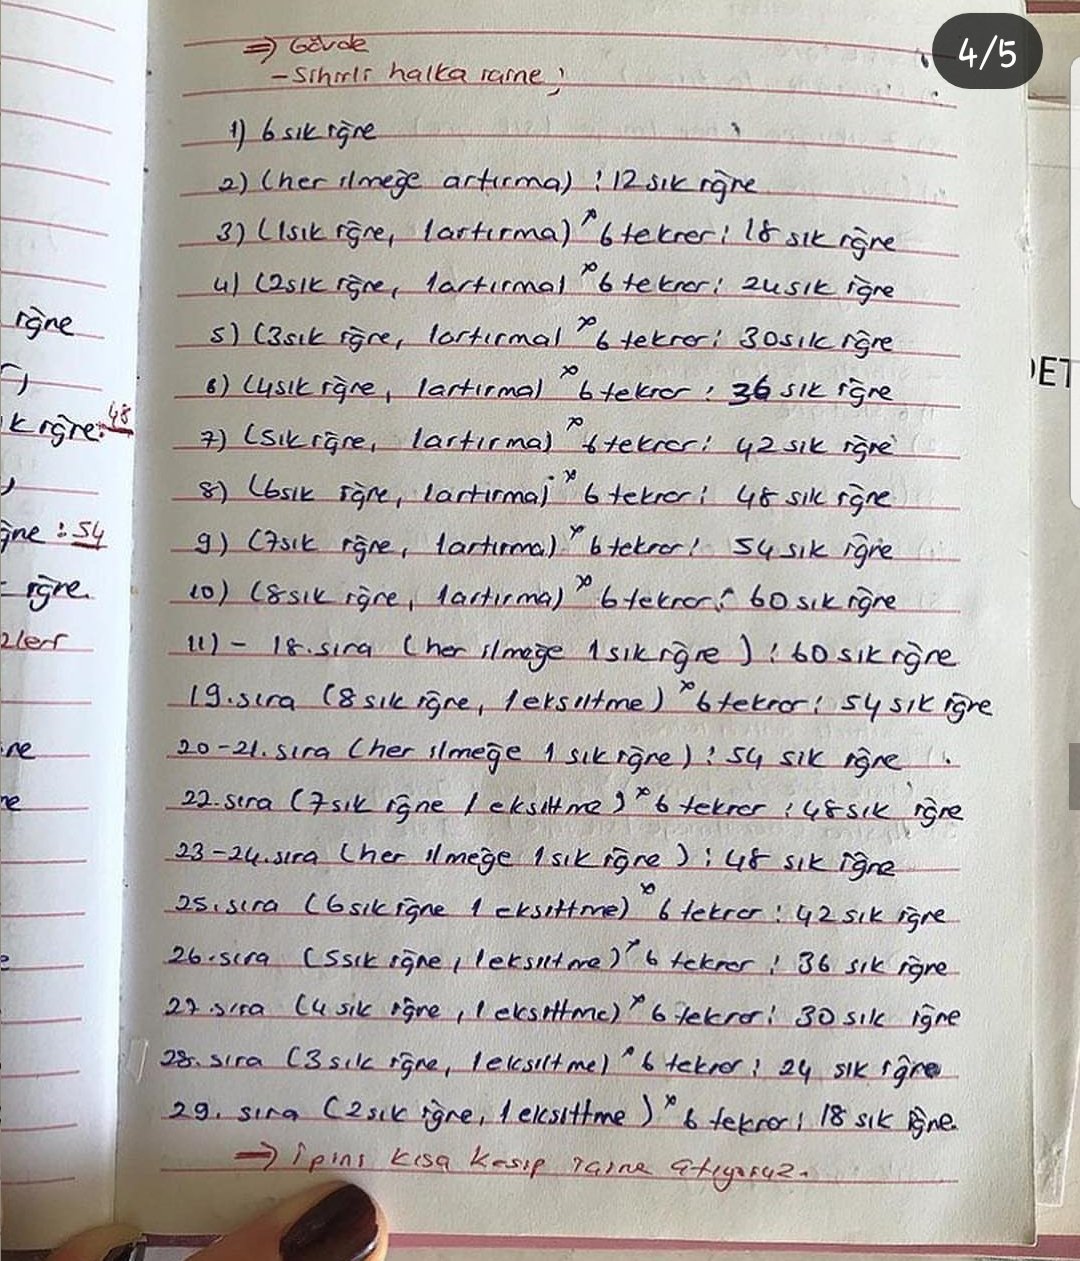 4/5
⇒ Gövde
- Sihirli halka içine;
1) 6 sık iğne
2) (her ilmeğe artırma) : 12 sık iğne
3) (1sık iğne, 1artırma) * 6 tekrar : 18 sık iğne
4) (2sık iğne, 1artırma) * 6 tekrar : 24 sık iğne
5) (3sık iğne, 1artırma) * 6 tekrar : 30 sık iğne
6) (4sık iğne, 1artırma) * 6 tekrar : 36 sık iğne
7) (5ık iğne, 1artırma) * 6 tekrar : 42 sık iğne
8) (6sık iğne, 1artırma) * 6 tekrar : 48 sık iğne
9) (7sık iğne, 1artırma) * 6 tekrar : 54 sık iğne
10) (8sık iğne, 1artırma) * 6 tekrar : 60 sık iğne
11) - 18. sıra (her ilmeğe 1 sık iğne) : 60 sık iğne
19. sıra (8 sık iğne, 1 eksiltme) * 6 tekrar : 54 sık iğne
20-21. sıra (her ilmeğe 1 sık iğne) : 54 sık iğne
22. sıra (7sık iğne 1 eksiltme) * 6 tekrar : 48 sık iğne
23-24. sıra (her ilmeğe 1 sık iğne) : 48 sık iğne
25. sıra (6sık iğne 1 eksiltme) * 6 tekrar : 42 sık iğne
26. sıra (5sık iğne, 1 eksiltme) * 6 tekrar : 36 sık iğne
27. sıra (4 sık iğne, 1 eksiltme) * 6 tekrar : 30 sık iğne
28. sıra (3 sık iğne, 1 eksiltme) * 6 tekrar : 24 sık iğne
29. sıra (2 sık iğne, 1 eksiltme) * 6 tekrar : 18 sık iğne.
⇒ İpini kısa kesip içine atıyoruz.
iğne
k iğne: 48
ğne : 54
iğne.
ne